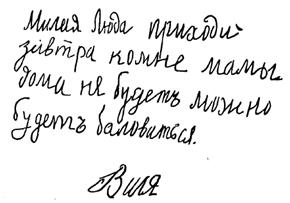 Милая Люда приходи
завтра комне мамы
дома не будетъ можно
будетъ баловиться.
Виля